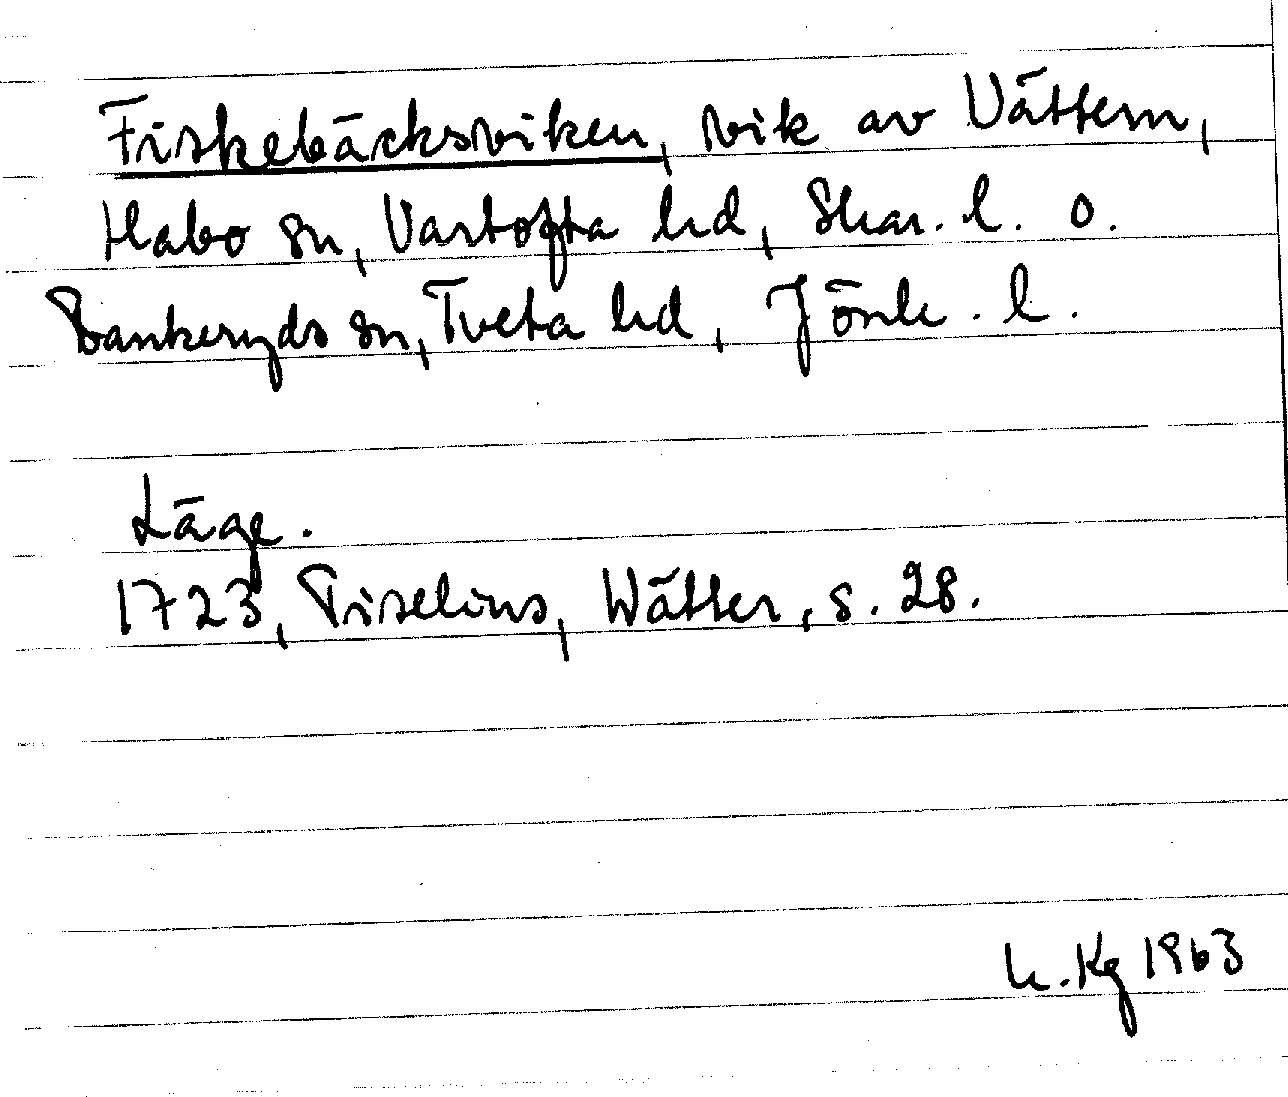 Fiskebäcksviken, vik av Vättern,
Habo sn, Vartofta hd, Skar. l. o.
Bankeryds sn, Tveta hd, Jönk. l.
Läge.
1723, Tiselius, Wätter, s. 28.
h. Kg 1963